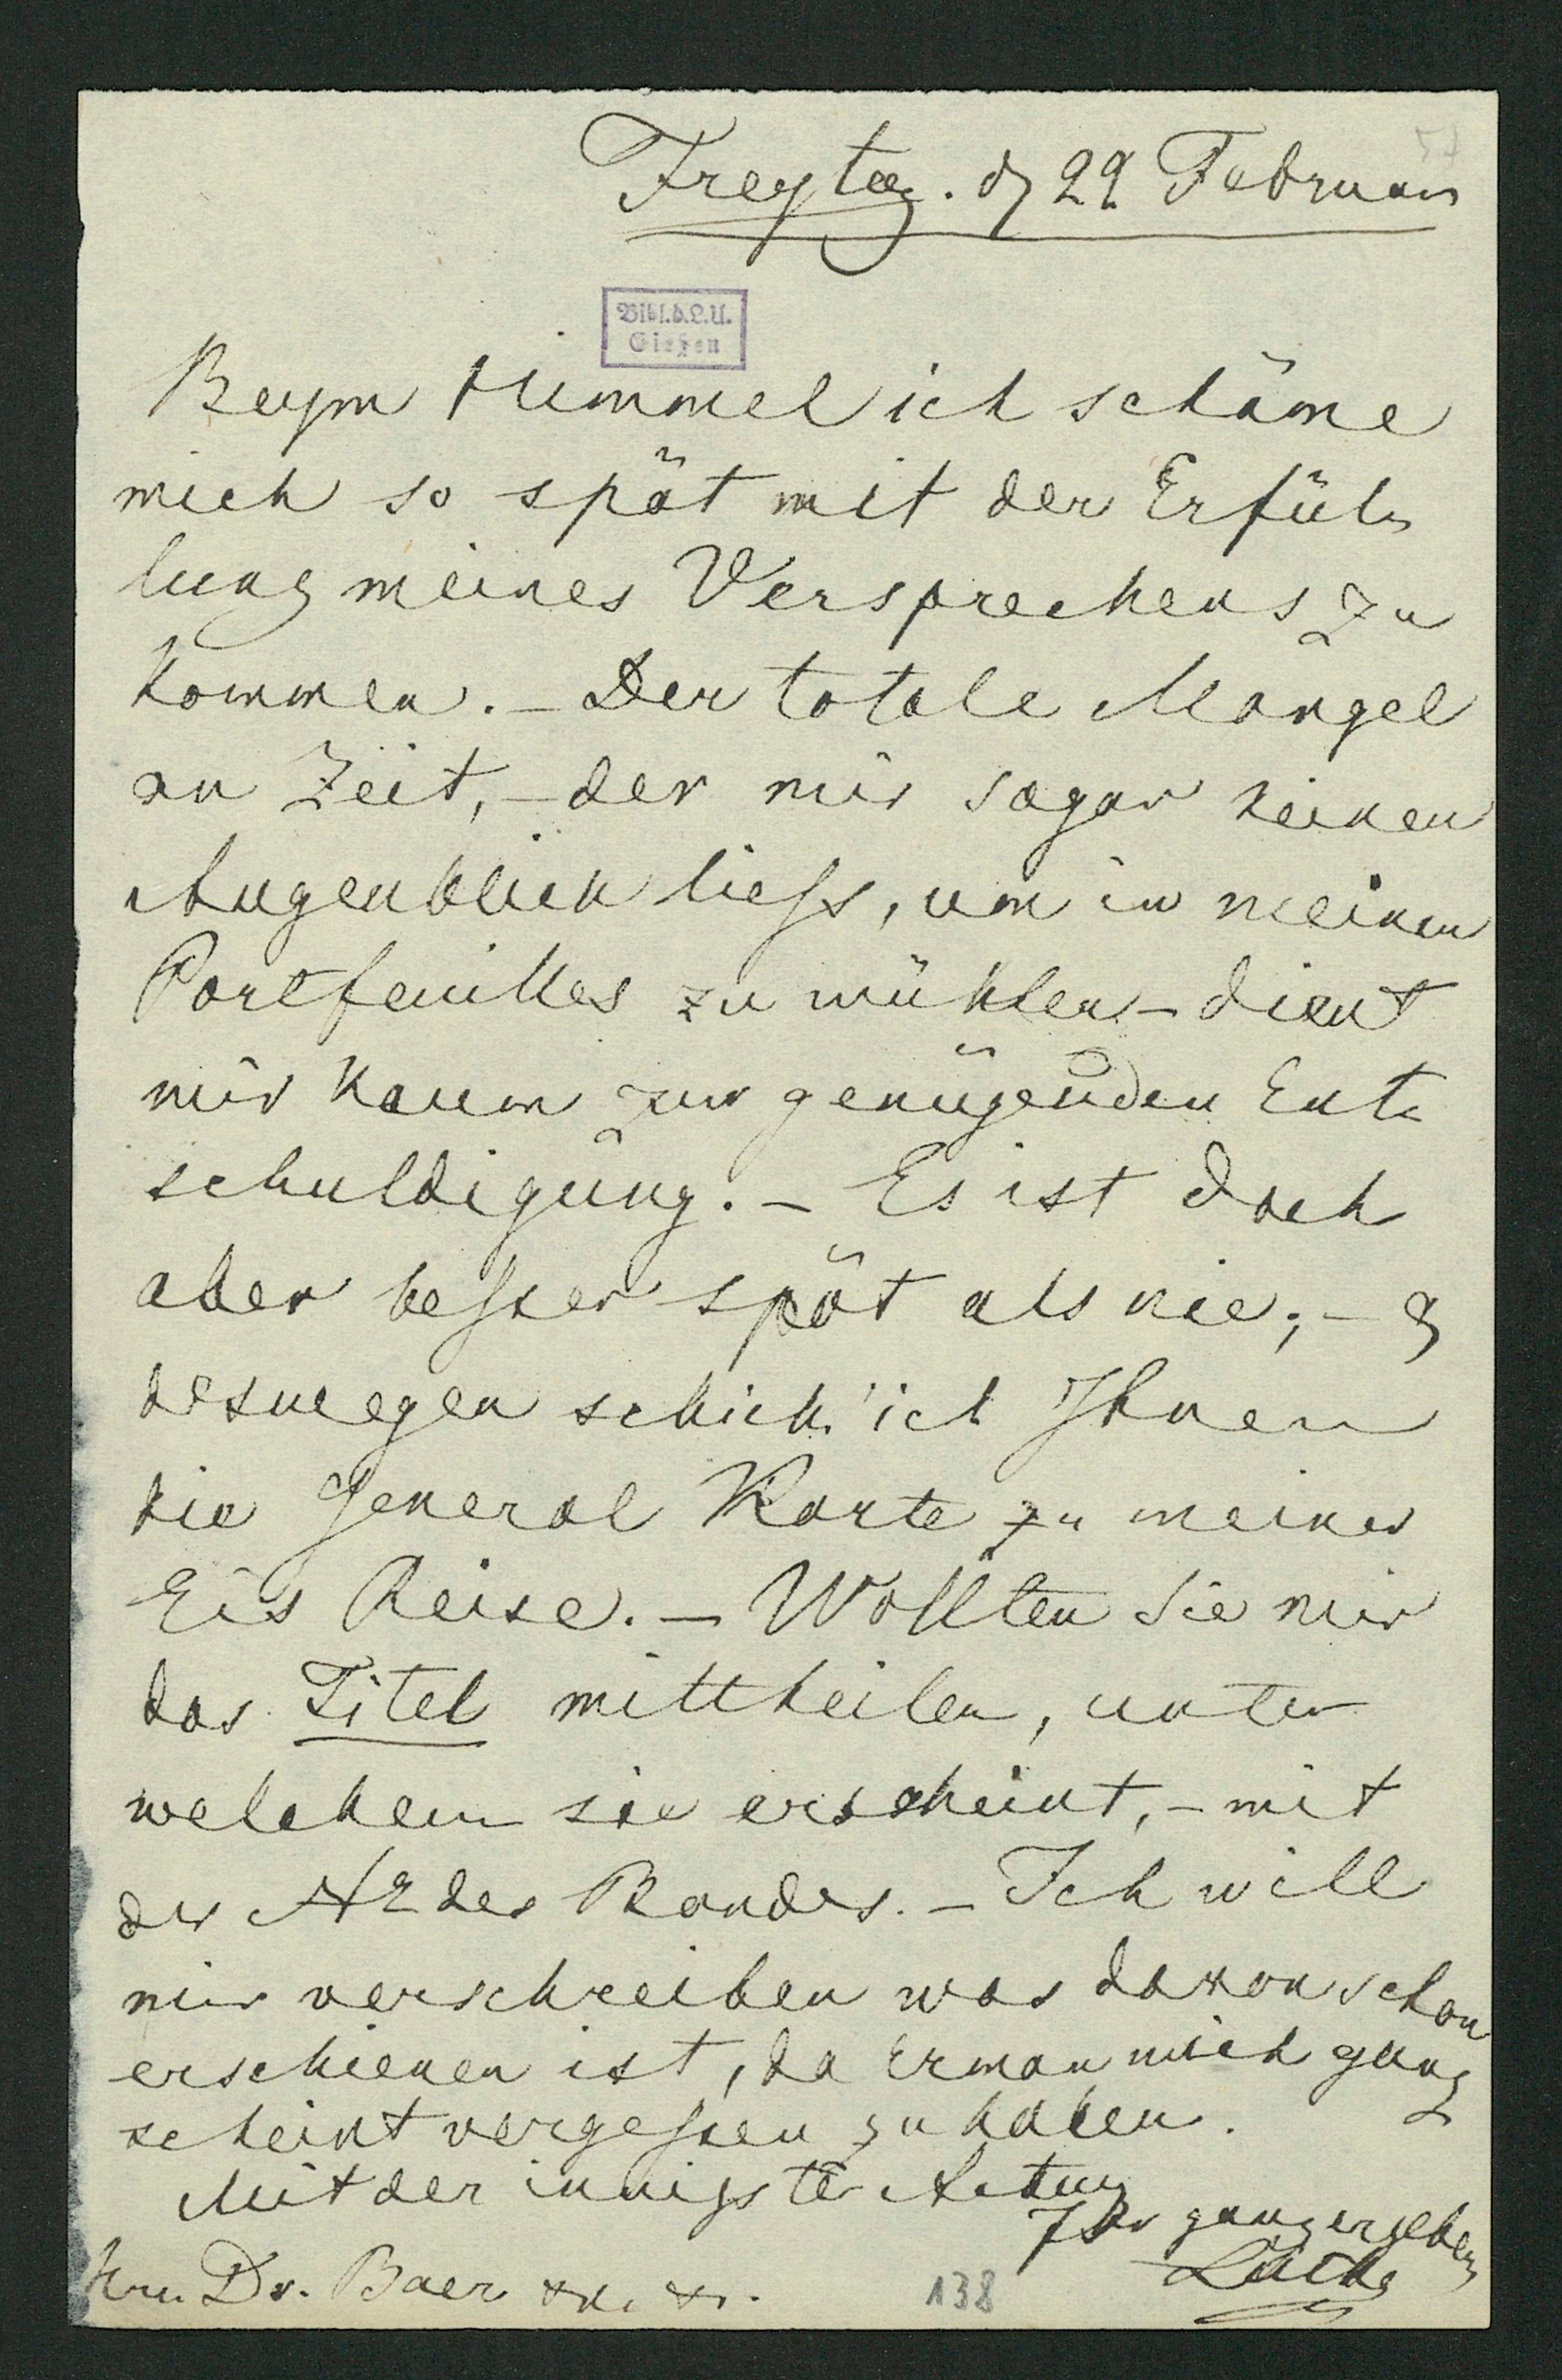 Freytag. d 22 Februar
Bibl.d.L.U.
Gießen
Beym Himmel ich schäme
mich so spät mit der Erfül-
lung meines Versprechens zu
kommen. – Der totale Mangel
an Zeit, – der mir sogar keinen
Augenblick liess, um in meinen
Portfeuilles zu wühlen – dient
mir kaum zur genügenden Ent-
schuldigung. – Es ist doch
aber besser spät als nie; – &
deswegen schick' ich Ihnen
die General Karte zu meiner
Eis Reise. – Wollten Sie mir
das Titel mittheilen, unter
welchem sie erscheint, – mit
der № des Bandes. – Ich will
mir verschreiben was davon schon
erschienen ist, da Erman mich ganz
scheint vergessen zu haben.
Mit der innigsten Achtung
Ihr ganz ergeben
Lütke
Hrn. Dr. Baer
138